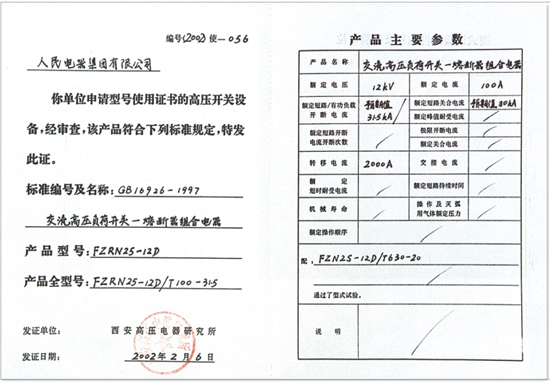 编号(2002)使—056
人民电器集团有限公司
你单位申请型号使用证书的高压开关设
备,经审查,该产品符合下列标准规定,特发
此证。
标准编号及名称:GB16926-1997
交流高压负荷开关—熔断器组合电器
产品型号:FZRN25-12D
产品全型号:FZRN25-12D/T100-31.5
发证单位: 西安高压电器研究所
发证日期: 2002年2月6日
产品主要参数
产品名称 交流高压负荷开关—熔断器组合电器
额定电压 12kV 额定电流 100A
额定短路/有功负载开断电流 预期值31.5kA 额定短路关合电流 预期值80kA
额定峰值耐受电流
额定短路开断电流开断次数 极限开断电流
额定关合电流
转移电流 2000A 交接电流
额定短时耐受电流 额定短路持续时间
机械寿命 操作及灭弧用气体额定压力
额定操作顺序
配: FZN25-12D/T630-20
通过了型式试验。
说明